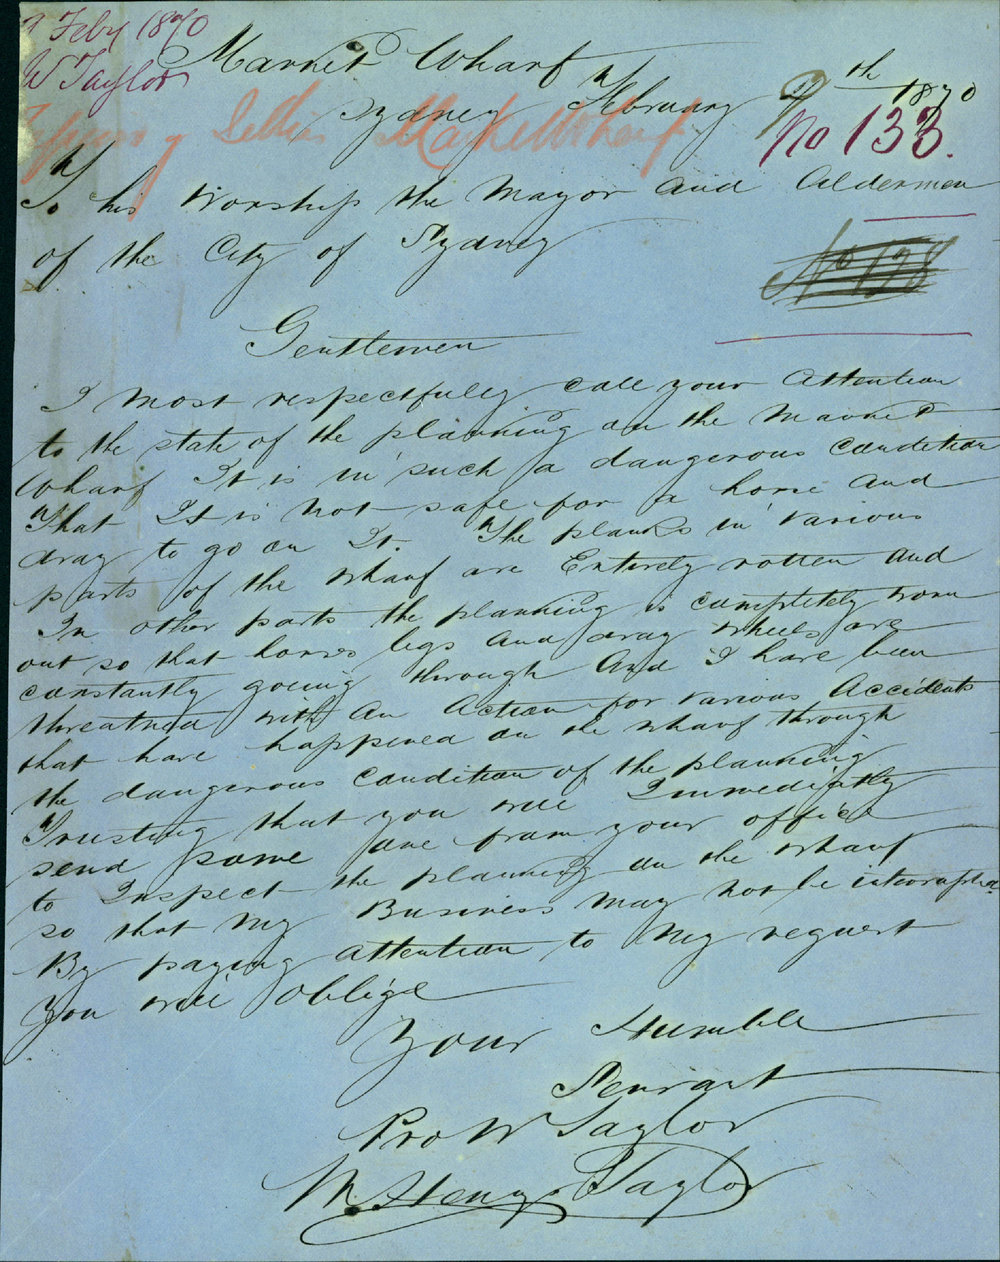 9 Feby 1870
W Taylor
Market Wharf
Sydney February 9th 1870
Market Wharf
No 133.
To his Worship the Mayor and Aldermen
of the City of Sydney
No 128
Gentlemen
I most respectfully call your Attention
to the state of the planking on the Market
Wharf It is in such a dangerous condition
That It is not safe for a horse and
dray to go on It. The planks in various
parts of the wharf are Entirely rotten and
In other parts the planking is completely worn
out so that horses legs and dray wheels are
constantly going through And I have been
threatned with an Action for various Accidents
that have happened on the wharf through
the dangerous condition of the planking
Trusting that you will Immediatly
send some one from your office
to Inspect the planking on the wharf
so that my Business may not be
By paying attention to my request
You will oblige
Your Humble
Servant
Pro W Taylor
M. Henry Taylor